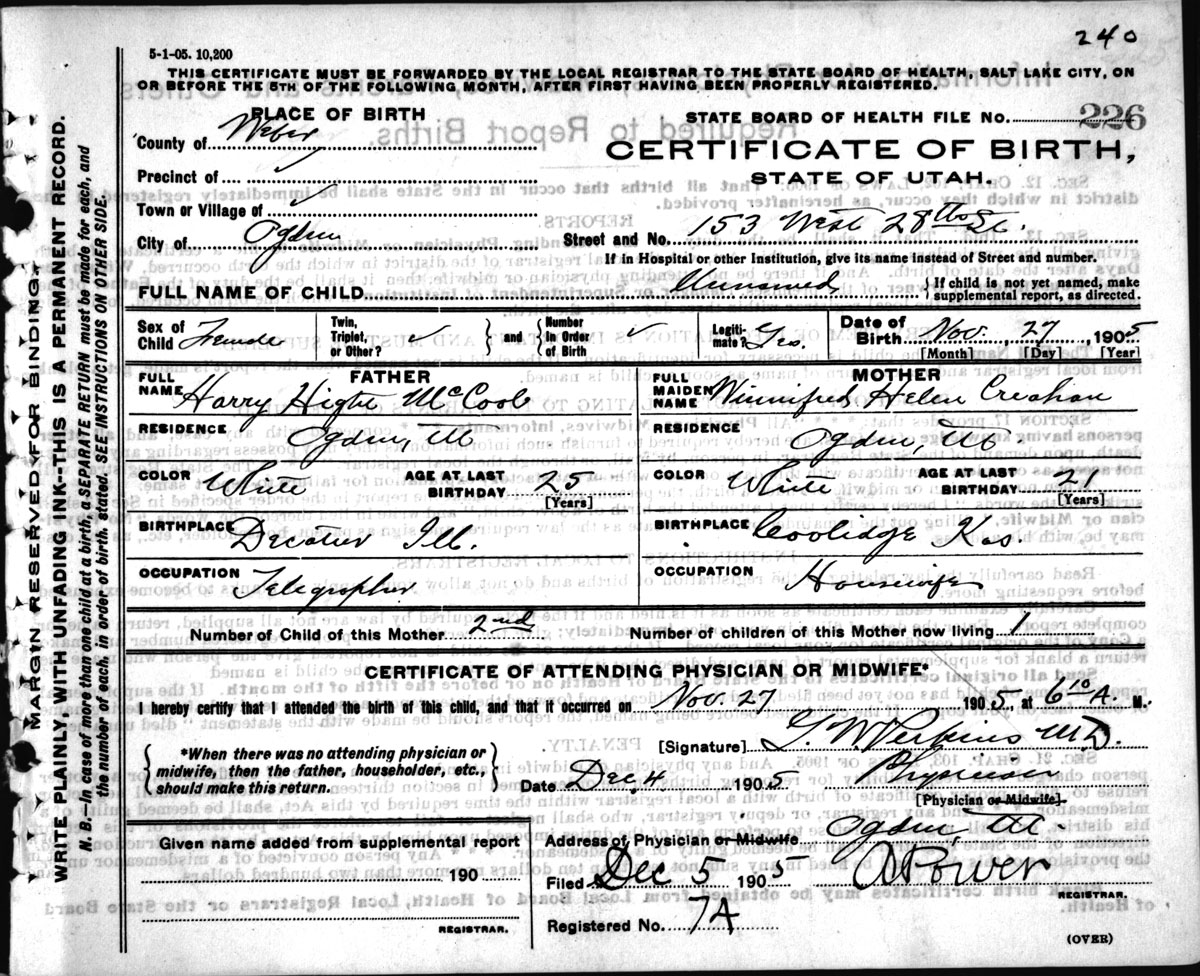 240
5-1-05. 10,200
THIS CERTIFICATE MUST BE FORWARDED BY THE LOCAL REGISTRAR TO THE STATE BOARD OF HEALTH, SALT LAKE CITY, ON
OR BEFORE THE 5TH OF THE FOLLOWING MONTH, AFTER FIRST HAVING BEEN PROPERLY REGISTERED.
PLACE OF BIRTH
STATE BOARD OF HEALTH FILE NO. 226
County of Weber
CERTIFICATE OF BIRTH,
Precinct of ✓
STATE OF UTAH.
Town or Village of ✓
City of Ogden
Street and No. 153 West 28th St.
If in Hospital or other Institution, give its name instead of Street and number.
FULL NAME OF CHILD Unnamed { If child is not yet named, make
supplemental report, as directed.
Sex of Child Female
Twin, Triplet, or Other? ✓ } and { Number in Order of Birth ✓
Legiti-mate? Yes.
Date of Birth Nov. 27, 1905
[Month] [Day] [Year]
FATHER
FULL NAME Harry McCool
RESIDENCE Ogden, Ut
COLOR White AGE AT LAST BIRTHDAY 25
[Years]
BIRTHPLACE Decatur Ill.
OCCUPATION Telegrapher
MOTHER
FULL MAIDEN NAME Winnifred Helen Creahan
RESIDENCE Ogden, Ut
COLOR White AGE AT LAST BIRTHDAY 21
[Years]
BIRTHPLACE Coolidge Kas.
OCCUPATION Housewife
Number of Child of this Mother 2nd
Number of children of this Mother now living 1
CERTIFICATE OF ATTENDING PHYSICIAN OR MIDWIFE*
I hereby certify that I attended the birth of this child, and that it occurred on Nov. 27 1905, at 6 10 A. M.
{ *When there was no attending physician or
midwife, then the father, householder, etc.,
should make this return. }
[Signature] Perkins M.D.
Date Dec, 4 1905 Physician
[Physician or Midwife]
Address of Physician or Midwife Ogden, Ut.
Given name added from supplemental report
190
REGISTRAR.
Filed Dec 5 1905 A Power
REGISTRAR.
Registered No. 7A
(OVER)
MARGIN RESERVED FOR BINDING.
WRITE PLAINLY, WITH UNFADING INK--THIS IS A PERMANENT RECORD.
N. B.--In case of more than one child at a birth, a SEPARATE RETURN must be made for each, and
the number of each, in order of birth, stated. SEE INSTRUCTIONS ON OTHER SIDE.